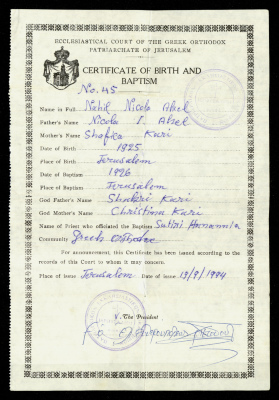 ECCLESIASTICAL COURT OF THE GREEK ORTHODOX
PATRIARCHATE OF JERUSALEM
CERTIFICATE OF BIRTH AND
BAPTISM
No. 45
Name in Full Nicola
Father's Name Nicola I.
Mother's Name Shafica Kuri
Date of Birth 1925
Place of Birth Jerusalem
Date of Baptism 1926
Place of Baptism Jerusalem
God Father's Name Shukri Kuri
God Mother's Name Christina Kuri
Name of Priest who officiated the Baptism Sutiri
Community Greek Orthodox
For announcement, this Certificate has been issued according to the
records of this Court to whom it may concern.
Place of Issue Jerusalem Date of issue
V. The President